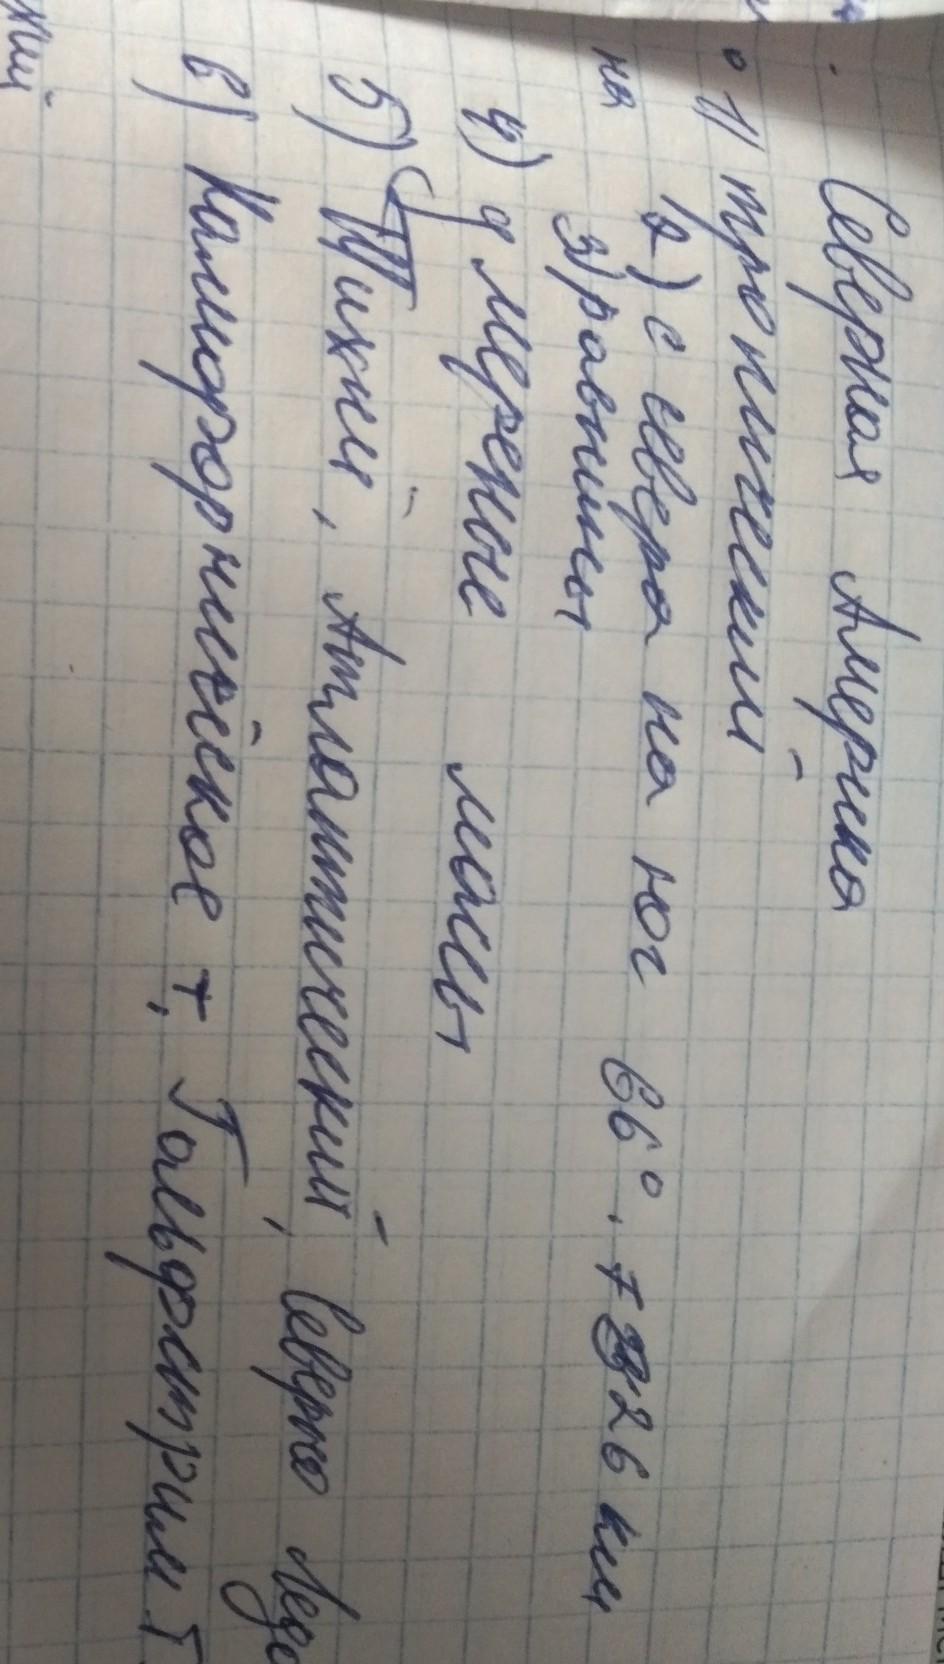 Северная Америка
1) тропический
2) с севера на юг 66°. 7326 км
на
3) равнины
4) умереные масы
5) Тихий, Атлантический, Северно Ледо
6) Калифорнийское т, Гольфстрим Т
жий